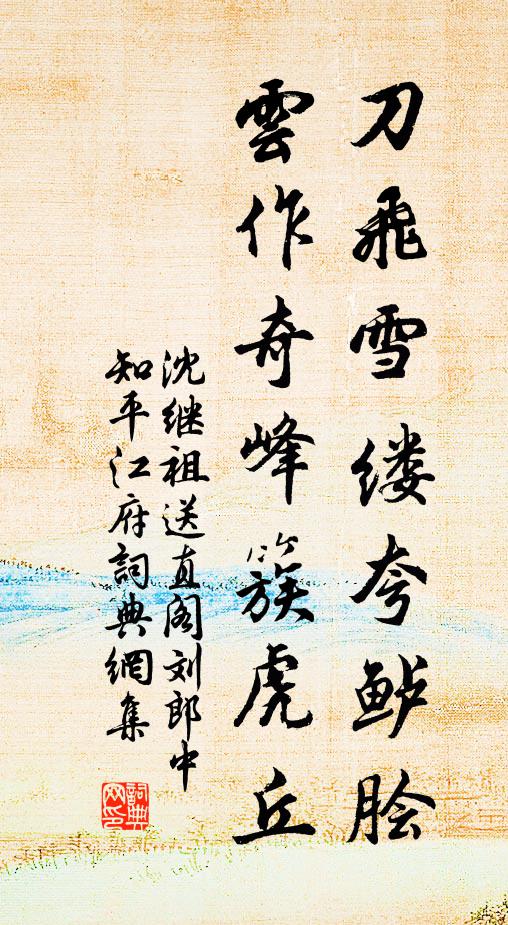 刀飛雪缕夸鲈脍
雲作奇峰簇虎丘
沈继祖送直阁刘郎中
知平江府詞典網集
詞典
网印